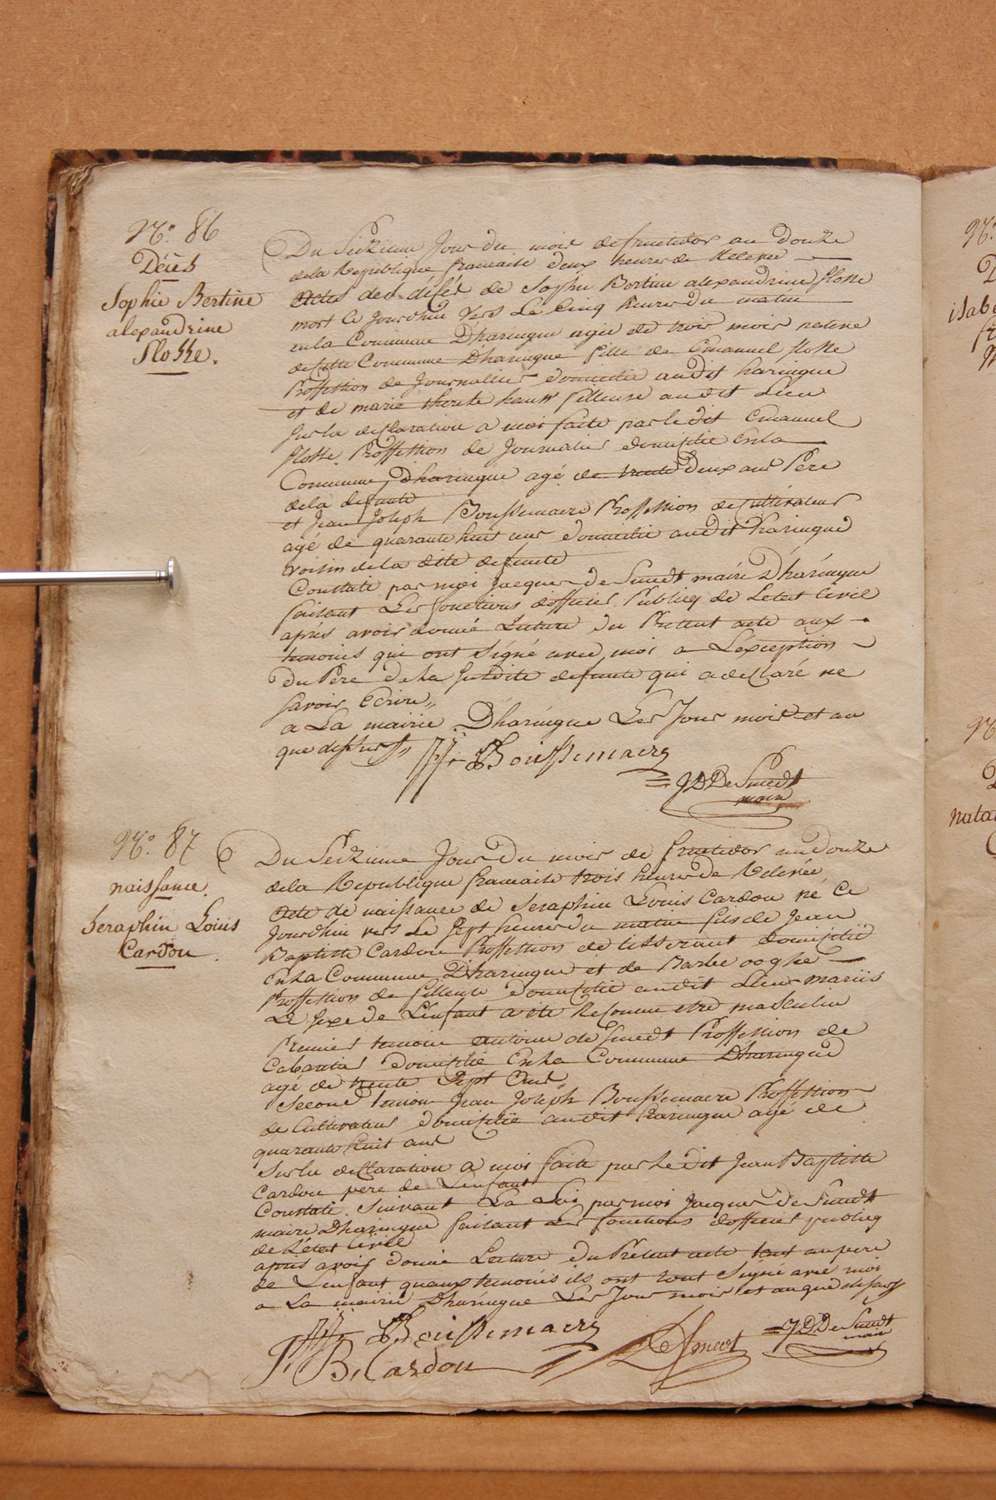 No. 86
Décès
Sophie Bertine
alexandrine
flosse.
Du Seizieme Jour du mois de fructidor an douze
de la Republique francaise deux heures de Relevée
Acte de décès de Sophie Bertine alexandrine flosse
mort ce Jourdhui vers Le Cinq heures du matin
en la Commune Dharingue agée de trois mois nee
de cette Commune Dharingue fille de Emanuel flosse
Proffession de Journalier domicilie audit haringue
et de marie fileuse audit Lieu
Sur la declaration a moi faite par le dit Emanuel
flosse Proffession de Journalier domicilie en la
Commune Dharingue agé de trente Deux ans Pere
de la defunte
et Jean Joseph Boussemaere Proffession de Cultivateur
agé de quarante huit ans domicilie audit haringue
voisin de la dite defunte
Constaté par moi Jacques De Smedt maire Dharingue
faisant Les fonctions d'officier Publiq de Letat Civil
apres avoir donné Lecture du Present acte aux
temoins qui ont Signé avec moi a Lexception
du Pere de la Susdite defunte qui a declaré ne
savoir Ecrire
a La mairie Dharingue Les Jour mois et an
que dessus
JJ Boussemaere
JDDeSmedt
maire
No. 87
naissance.
Seraphin Louis
Cardou
Du Seizieme Jour du mois de fructidor an douze
de la Republique francaise trois heures de Relevée
Acte de naissance de Seraphin Louis Cardou né Ce
Jourdhui vers Le Sept heures du matin fils de Jean
Baptiste Cardou Proffession de tisserant domicilié
En La Commune Dharingue et de Barbe ooghe
Proffession de fileuse domicilie audit Lieu mariés
Le Sexe de L'enfant a eté Reconnu etre masculin
Premier temoin antoine de Smedt Proffession de
Cabaretier domicilié En La Commune Dharingue
agé de trente Sept Ans
Second temoin Jean Joseph Boussemaere Proffession
de Cultivateur domicilié audit haringue agé de
quarante huit ans
Sur la declaration a moi faite par Le dit Jean Baptiste
Cardou pere de L'enfant
Constaté Suivant La Loi par moi Jacques De Smedt
maire Dharingue faisant Les fonctions d'officier publiq
de L'etat Civil
apres avoir donné Lecture du Present acte tant au pere
de L'enfant quaux temoins ils ont tout Signé avec moi
a La mairie Dharingue Les Jour mois et an que dessus
JJ Boussemaere
J. B. Cardou
DeSmedt
JDDeSmedt
maire